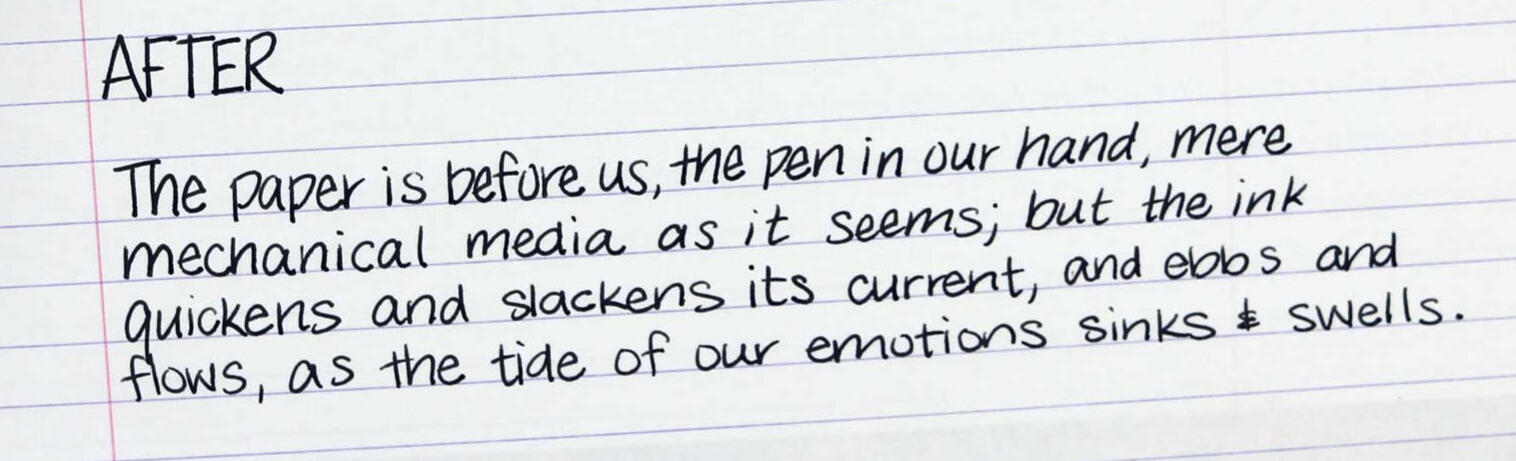 AFTER
The paper is before us, the pen in our hand, mere
mechanical media as it seems; but the ink
quickens and slackens its current, and ebbs and
flows, as the tide of our emotions sinks & swells.